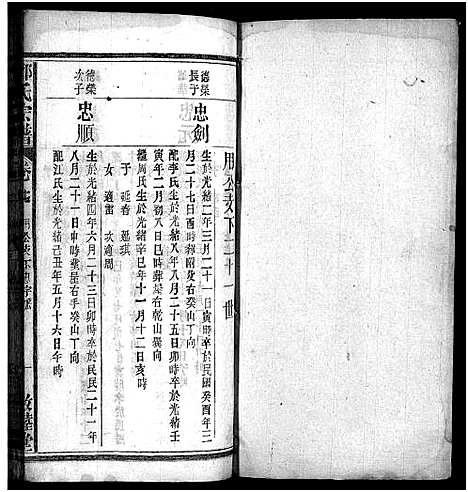 朋公支下二十一世
德榮長子
忠劍
生於光緒二年三月二十一日寅時卒於民國癸酉年三
月二十七日酉時葬昭癸山丁向
配李氏生於光緒八年八月二十五日卯時卒於光緒壬
寅年二月初八日巳時葬是右乾山巽向
繼周氏生於光緒辛巳年十一月十二日亥時
子 延香 延琪
女 適雷 次適周
德榮次子
忠順
生於光緒四年六月二十三日卯時卒於民國二十一年
八月二十一日申時葬是右手癸山丁向
配江氏生於光緒己丑年五月十六日午時
氏宗譜
卷
朋公支下
一
敦睦堂